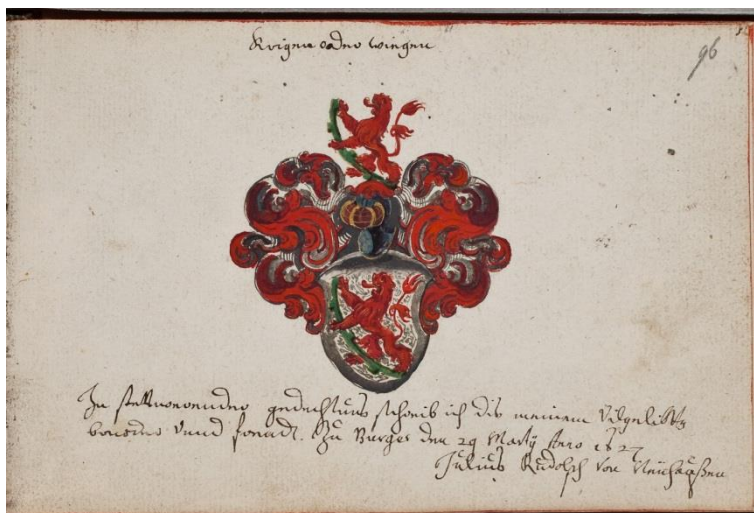 Krigen oder wingen
96
In stettwerender gedechtnus schreib ich dis meinem Vilgelibten
bruder vnnd freindt. Zu Burges den 29 Martij Anno 1627
Julius Rudolph von Neuhaußen